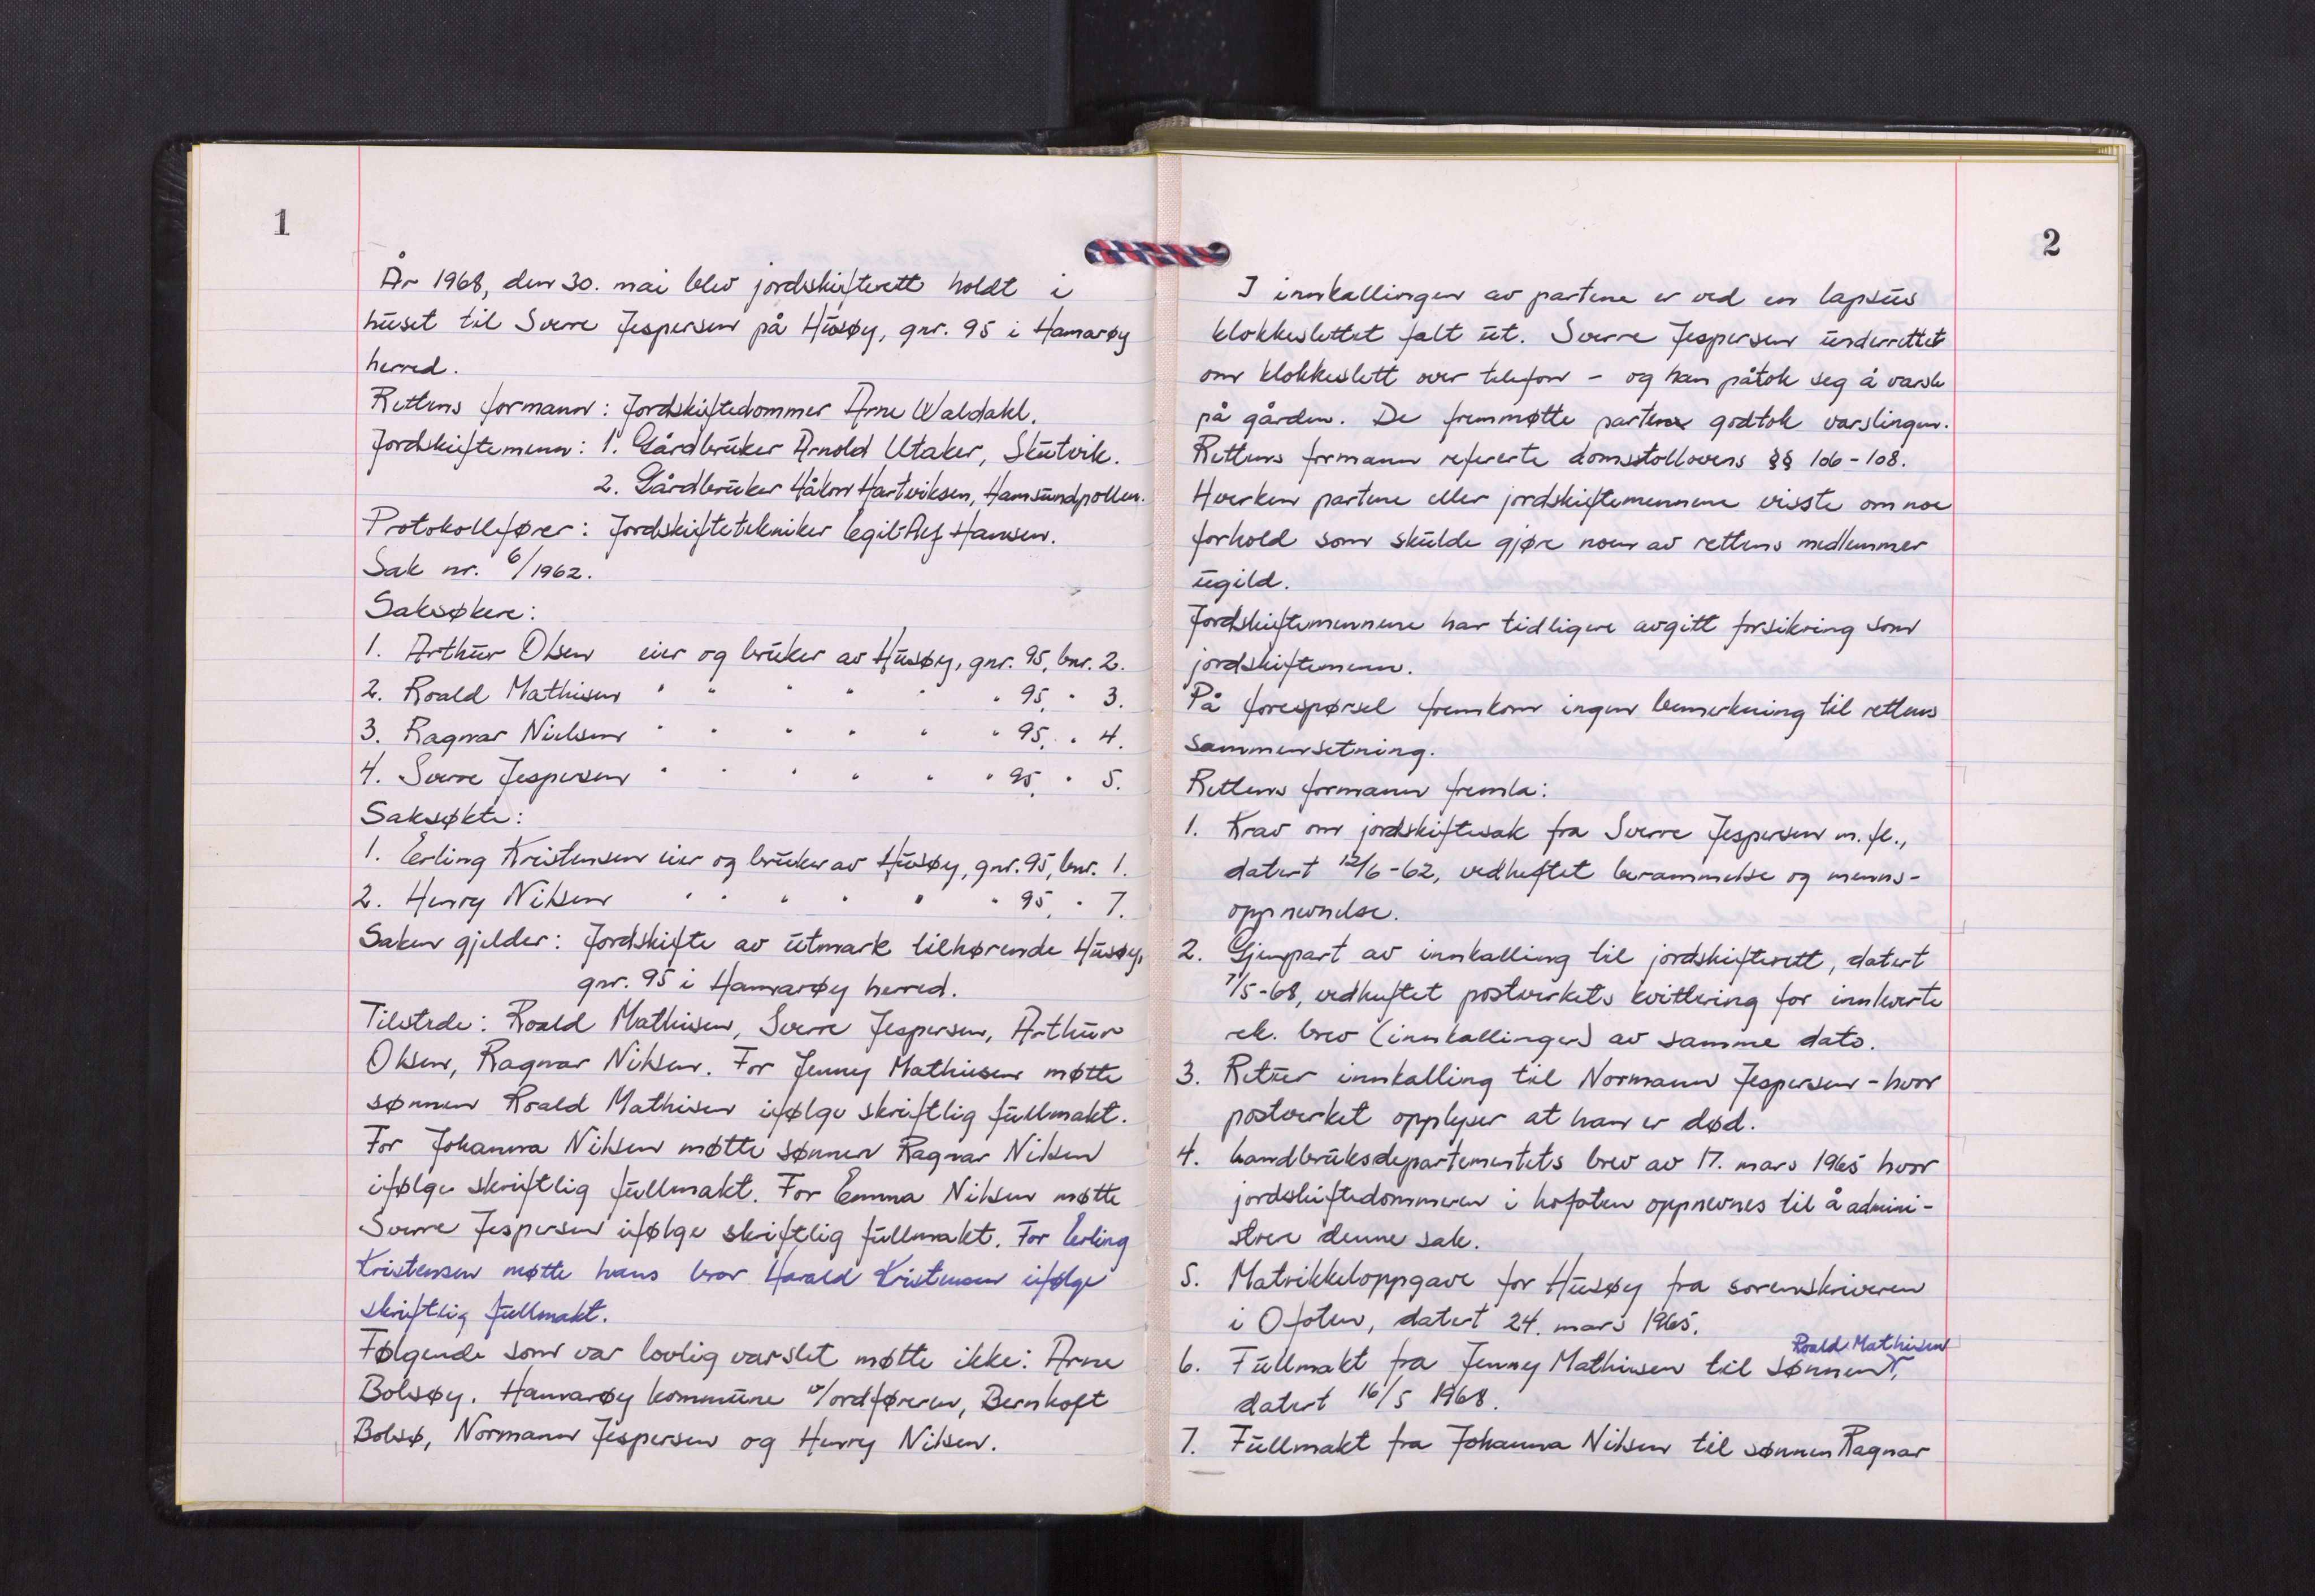 1
År 1968, den 30. mai blev jordskifterett holdt i
huset til Sverre Jespersen på Husøy, gnr. 95 i Hamarøy
herred.
Rettens formann: Jordskiftedommer Arne Waldahl.
Jordskiftemenn: 1. Gårdbruker Arnold Utaker, Skutvik.
2. Gårdbruker Håkon Hartviksen, Hamsundpollen.
Protokollfører: Jordskiftetekniker Egil-Alf Hansen.
Sak nr. 6/1962.
Saksøkere:
1. Arthur Olsen eier og bruker av Husøy, gnr. 95, bnr. 2.
2. Roald Mathisen " " " " " " 95, " 3.
3. Ragnar Nielsen " " " " " " 95, " 4.
4. Sverre Jespersen " " " " " " 95, " 5.
Saksøkte:
1. Erling Kristensen eier og bruker av Husøy, gnr. 95, bnr. 1.
2. Henry Nilsen " " " " " " 95, " 7.
Saken gjelder: Jordskifte av utmark tilhørende Husøy,
gnr. 95 i Hamarøy herred.
Tilstede: Roald Mathisen, Sverre Jespersen, Arthur
Olsen, Ragnar Nilsen. For Jenny Mathiesen møtte
sønnen Roald Mathisen ifølge skriftlig fullmakt.
For Johanna Nilsen møtte sønnen Ragnar Nilsen
ifølge skriftlig fullmakt. For Emma Nilsen møtte
Sverre Jespersen ifølge skriftlig fullmakt. For Erling
Kristensen møtte hans bror Harald Kristensen ifølge
skriftlig fullmakt.
Følgende som var lovlig varslet møtte ikke: Arne
Bolsøy. Hamarøy kommune v/ordføreren, Bernhoft
Bolsø, Normann Jespersen og Henry Nilsen.
2
I innkallingen av partene er ved en lapsus
klokkeslettet falt ut. Sverre Jespersen underrettet
om klokkeslett over telefon - og han påtok seg å varsle
på gården. De fremmøtte partene godtok varslingen.
Rettens formann refererte domsstollovens §§ 106-108.
Hverken partene eller jordskiftemennene visste om noe
forhold som skulde gjøre noen av rettens medlemmer
ugild.
Jordskiftemennene har tidligere avgitt forsikring som
jordskiftemenn.
På forespørsel fremkom ingen bemerkning til rettens
sammensetning.
Rettens formann fremla:
1. Krav om jordskiftesak fra Sverre Jespersen m. fl.,
datert 12/6-62, vedheftet berammelse og menns-
oppnevnelse.
2. Gjenpart av innkalling til jordskifterett, datert
7/5-68, vedheftet postverkets kvittering for innleverte
rek. brev (innkallinger) av samme dato.
3. Retur innkalling til Normann Jespersen - hvor
postverket opplyser at han er død.
4. Landbruksdepartementets brev av 17. mars 1965 hvor
jordskiftedommeren i Lofoten oppnevnes til å admini-
strere denne sak.
5. Matrikkeloppgave for Husøy fra sorenskriveren
i Ofoten, datert 24. mars 1965.
Roald Mathisen
6. Fullmakt fra Jenny Mathiesen til sønnen,
datert 16/5 1968.
7. Fullmakt fra Johanna Nilsen til sønnen Ragnar